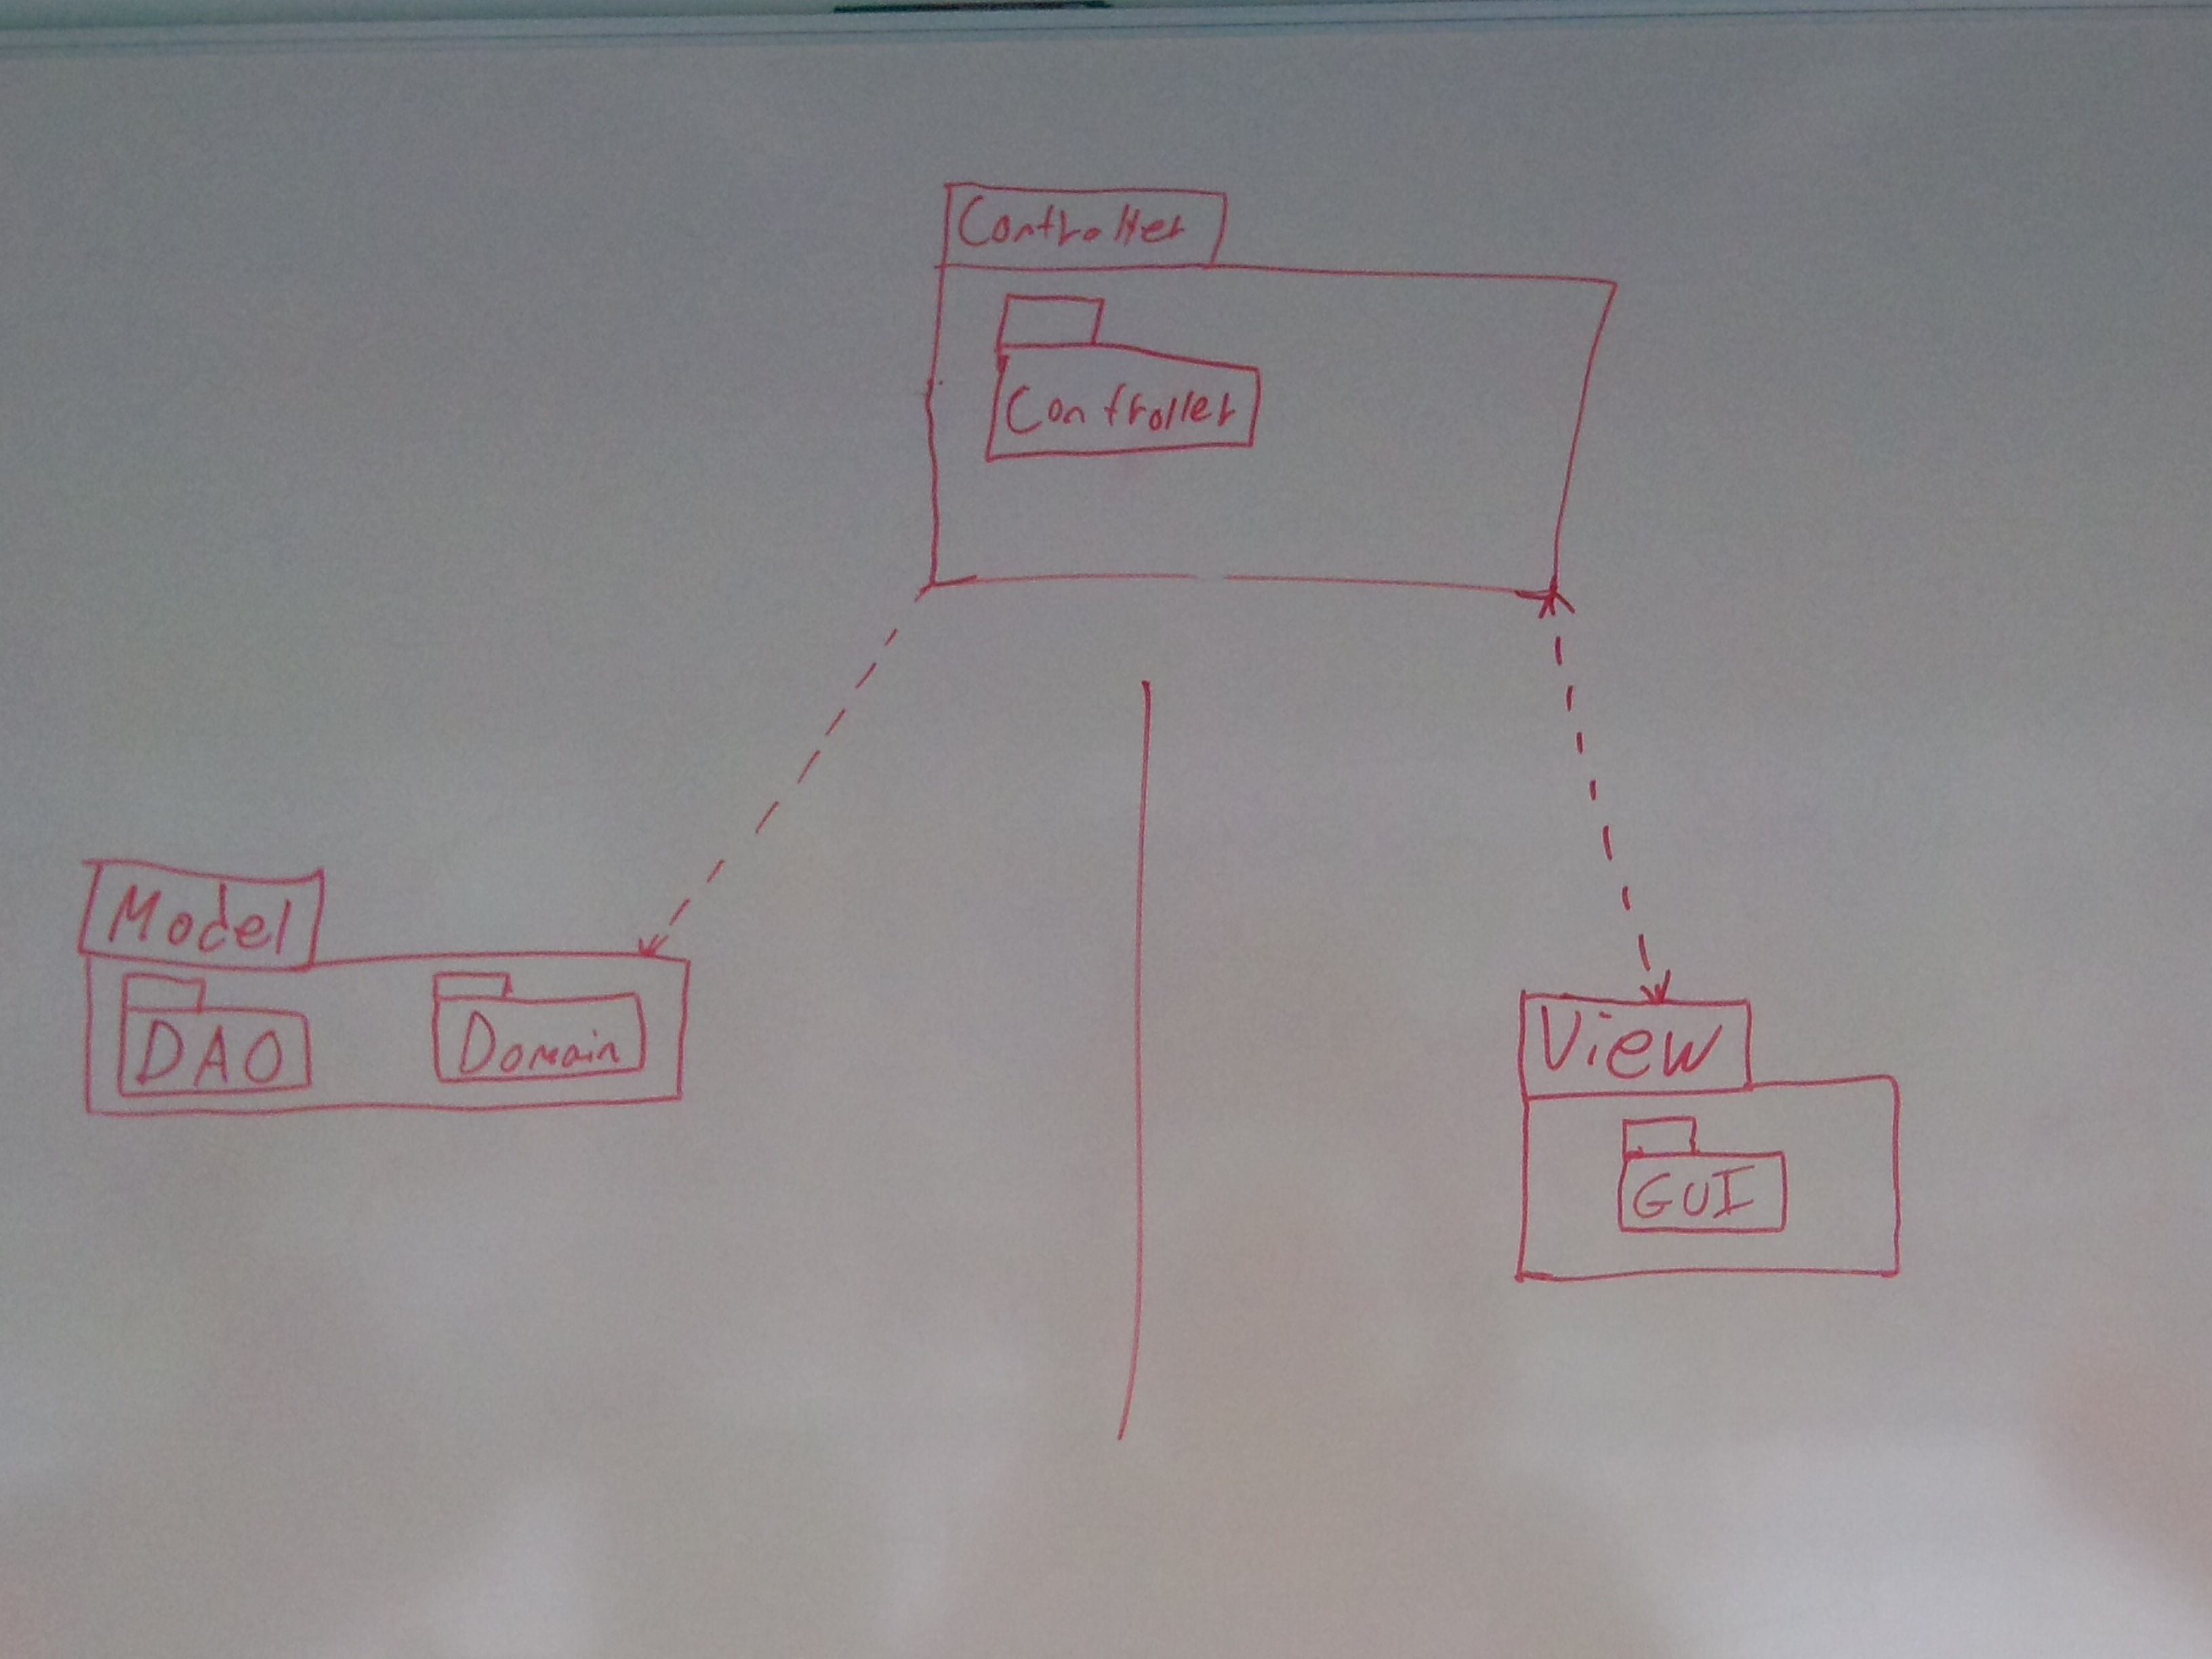 Controller
Controller
Model
DAO
Domain
View
GUI